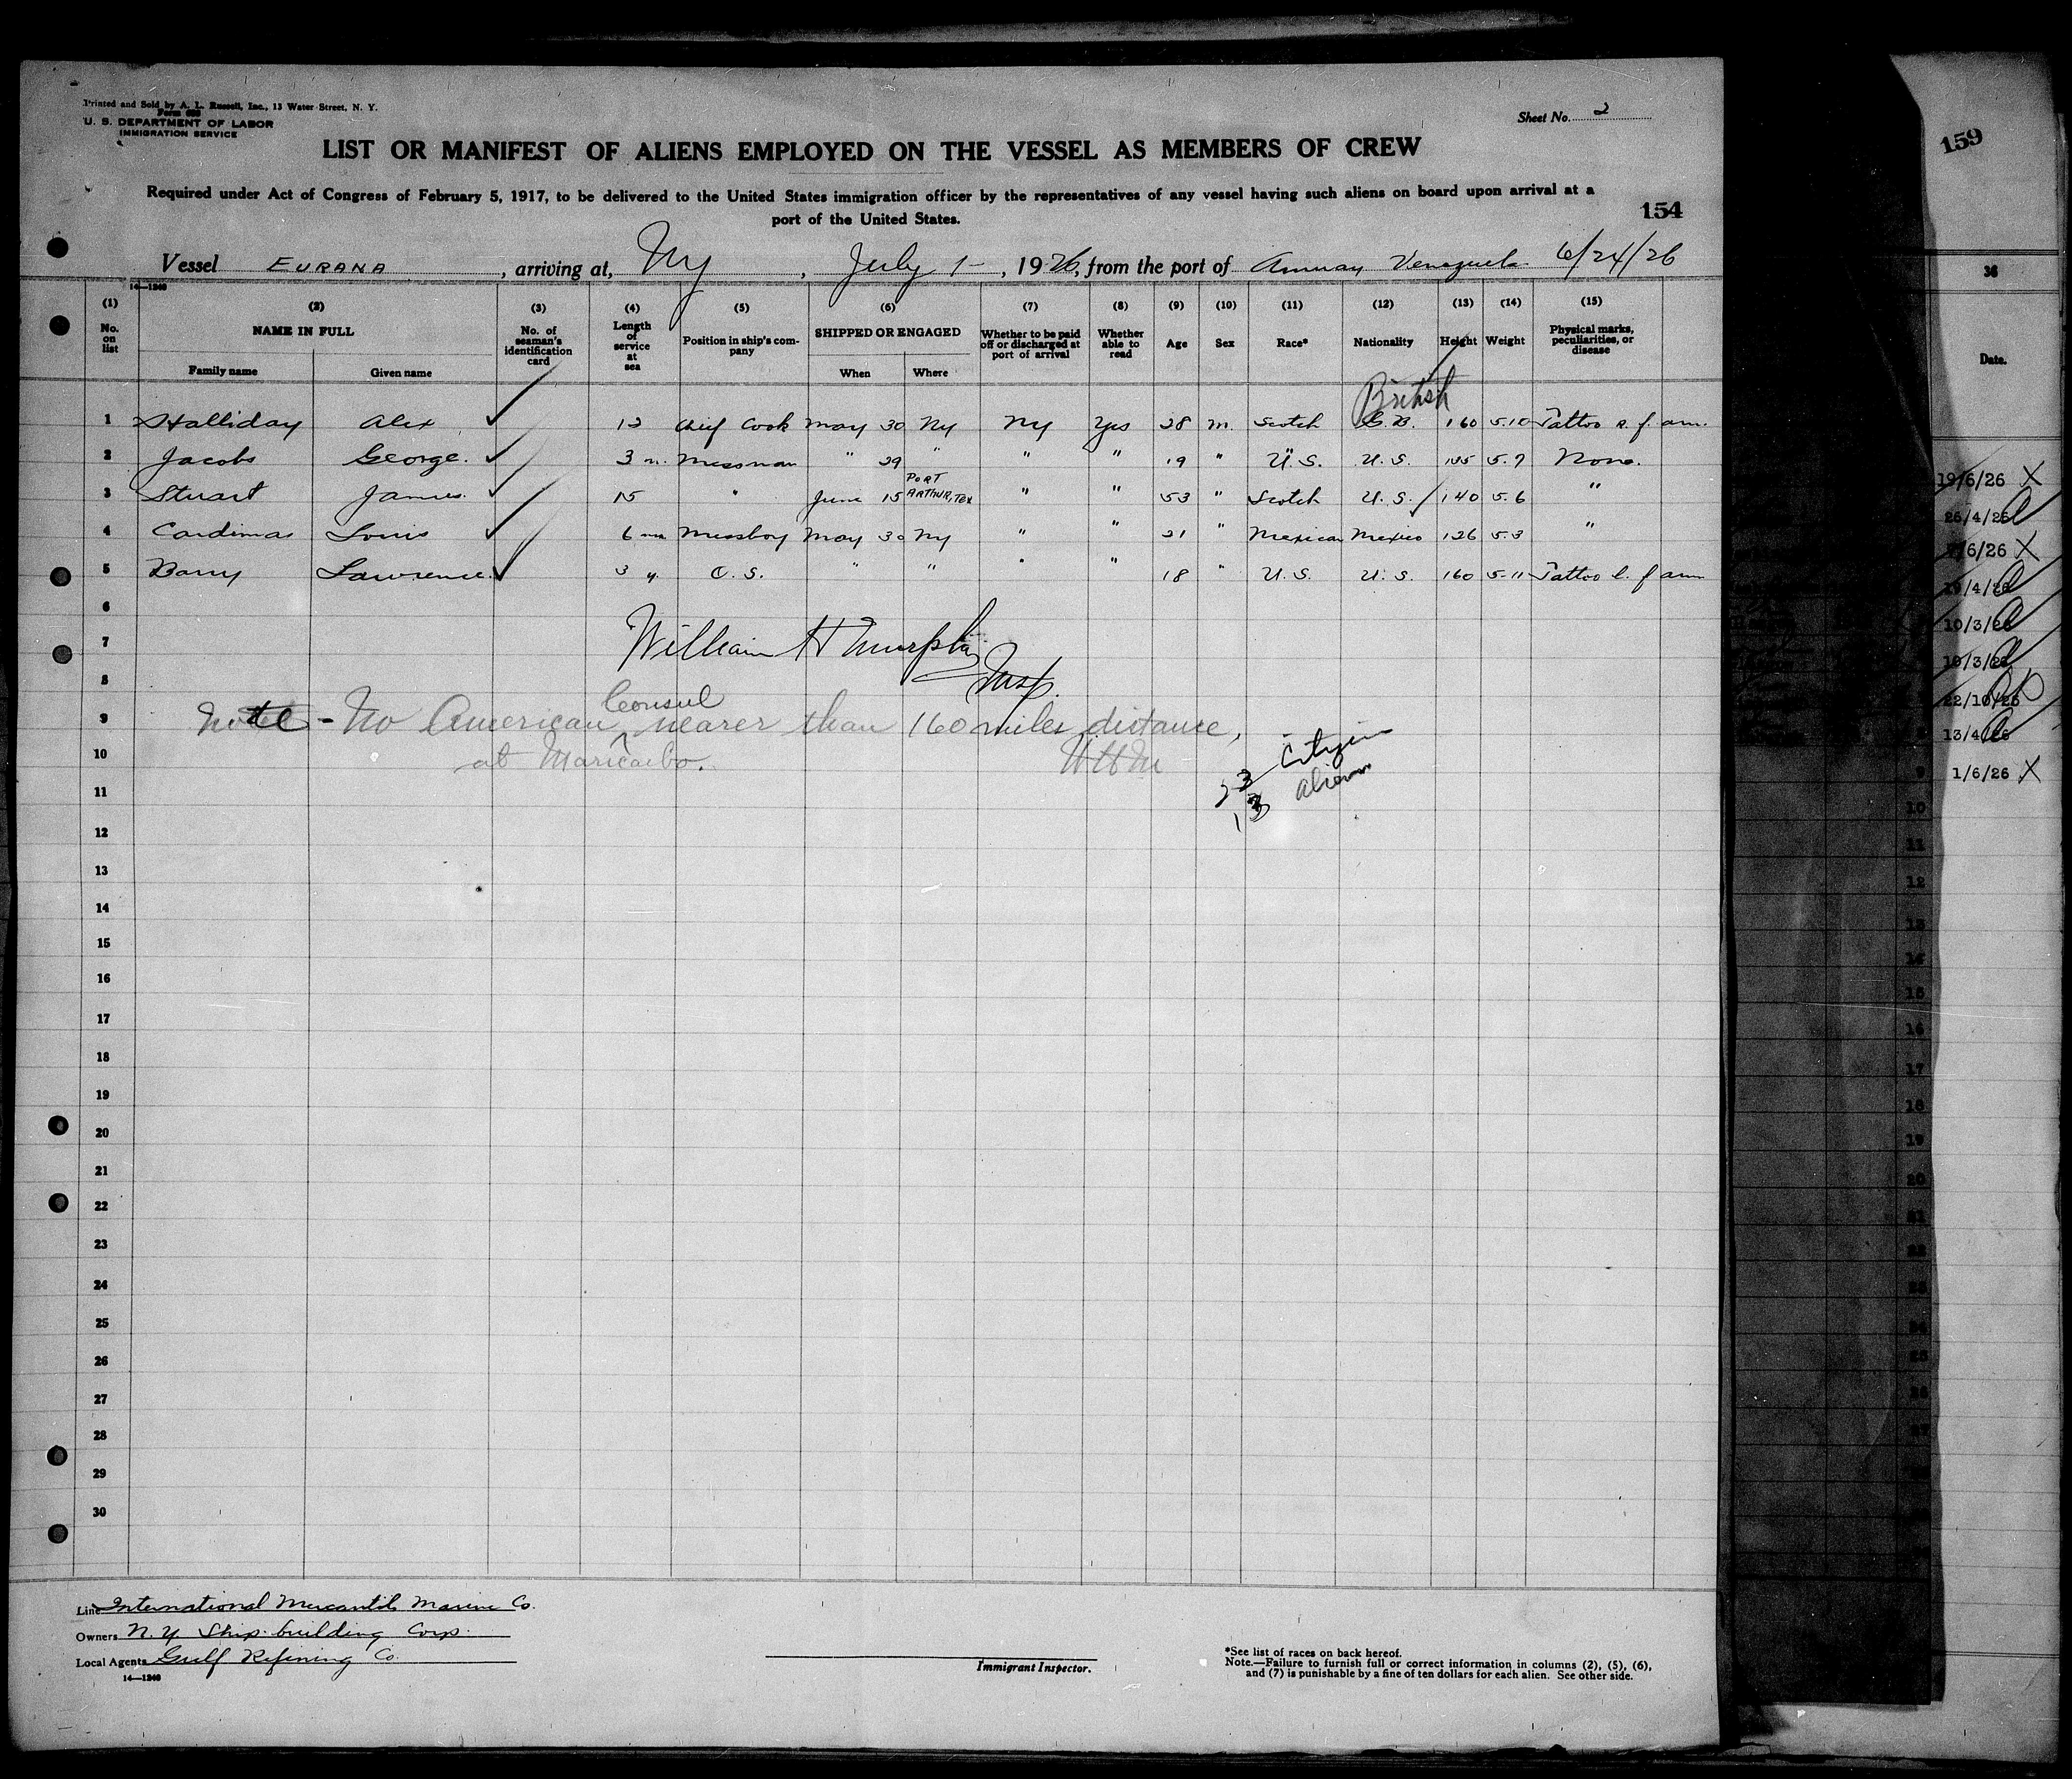 Printed and Sold by A. L. Russell, Inc., 13 Water Street, N. Y.
Form 689
U. S. DEPARTMENT OF LABOR
IMMIGRATION SERVICE
Sheet No. 2
LIST OR MANIFEST OF ALIENS EMPLOYED ON THE VESSEL AS MEMBERS OF CREW
Required under Act of Congress of February 5, 1917, to be delivered to the United States immigration officer by the representatives of any vessel having such aliens on board upon arrival at a
port of the United States.
154
Vessel EURANA, arriving at, Ny, July 1, 1926, from the port of Amuay Venezuela 6/24/26
14—1240
(1) (2) (3) (4) (5) (6) (7) (8) (9) (10) (11) (12) (13) (14) (15)
No. on list NAME IN FULL Family name Given name No. of seaman's identification card Length of service at sea Position in ship's company SHIPPED OR ENGAGED When Where Whether to be paid off or discharged at port of arrival Whether able to read Age Sex Race* Nationality Height Weight Physical marks, peculiarities, or disease
British
1 Halliday Alex 12 Chief Cook May 30 Ny Ny Yes 28 m. Scotch G.B. 160 5.10 Tattoo r. f. arm.
2 Jacobs George. 3 m. Messman " 29 " " " 19 " U.S. U.S. 135 5.7 None.
3 Stuart James. 15 " June 15 PORT ARTHUR, TEX " " 53 " Scotch U.S. 140 5.6 "
4 Cardimas Louis 6 mo Messboy May 30 Ny " " 21 " Mexican Mexico 126 5.3 "
5 Barry Lawrence. 3 y. O.S. " " " " 18 " U.S. U.S. 160 5.11 Tattoo l. f arm
6
7 William H Murphy
8 Insp.
9 Note - No American Consul nearer than 160 miles distance,
10 at Maricaibo. WHM
3 Citizen
3 alien
11
12
13
14
15
16
17
18
19
20
21
22
23
24
25
26
27
28
29
30
Line International Mercantile Marine Co.
Owners N.Y Ship-building Corp.
Local Agents Gulf Refining Co.
14—1240
Immigrant Inspector.
*See list of races on back hereof.
Note.—Failure to furnish full or correct information in columns (2), (5), (6),
and (7) is punishable by a fine of ten dollars for each alien. See other side.
159
36
Date.
19/6/26 X
26/4/26
6/26 X
19/4/26
10/3/26
10/3/26
22/10/25
13/4/26
9 1/6/26 X
10
11
12
13
14
15
16
17
18
19
20
21
22
23
24
25
26
27